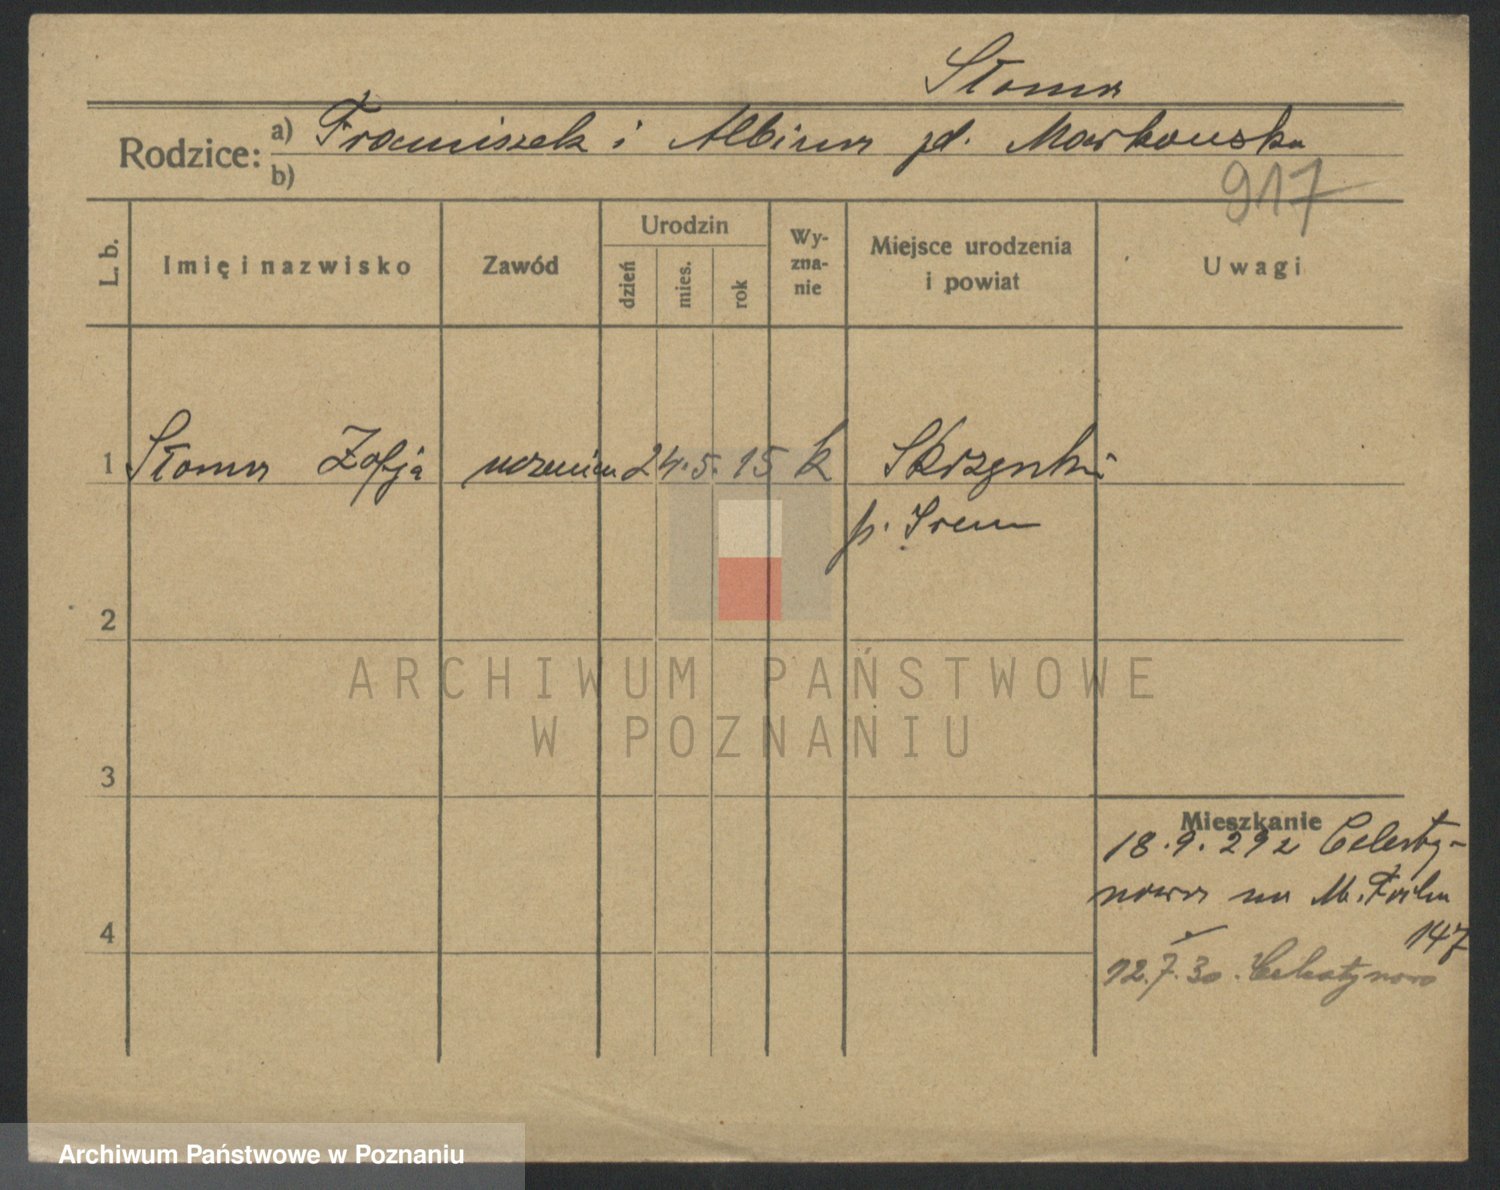 Słoma
Rodzice: a) Franciszek i Albina zd. Markowska
b)
917
L. b. Imię i nazwisko Zawód Urodzin dzień mies. rok Wyznanie Miejsce urodzenia i powiat Uwagi
1 Słoma Zofja uczenica 24. 5. 15 k Skrzynki
p. Śrem
2
ARCHIWUM PAŃSTWOWE
W POZNANIU
3
Mieszkanie
18. 9. 29 z Celesty-
nowa na M. Focha
147
4
12. 7. 30. Celestynowo
Archiwum Państwowe w Poznaniu